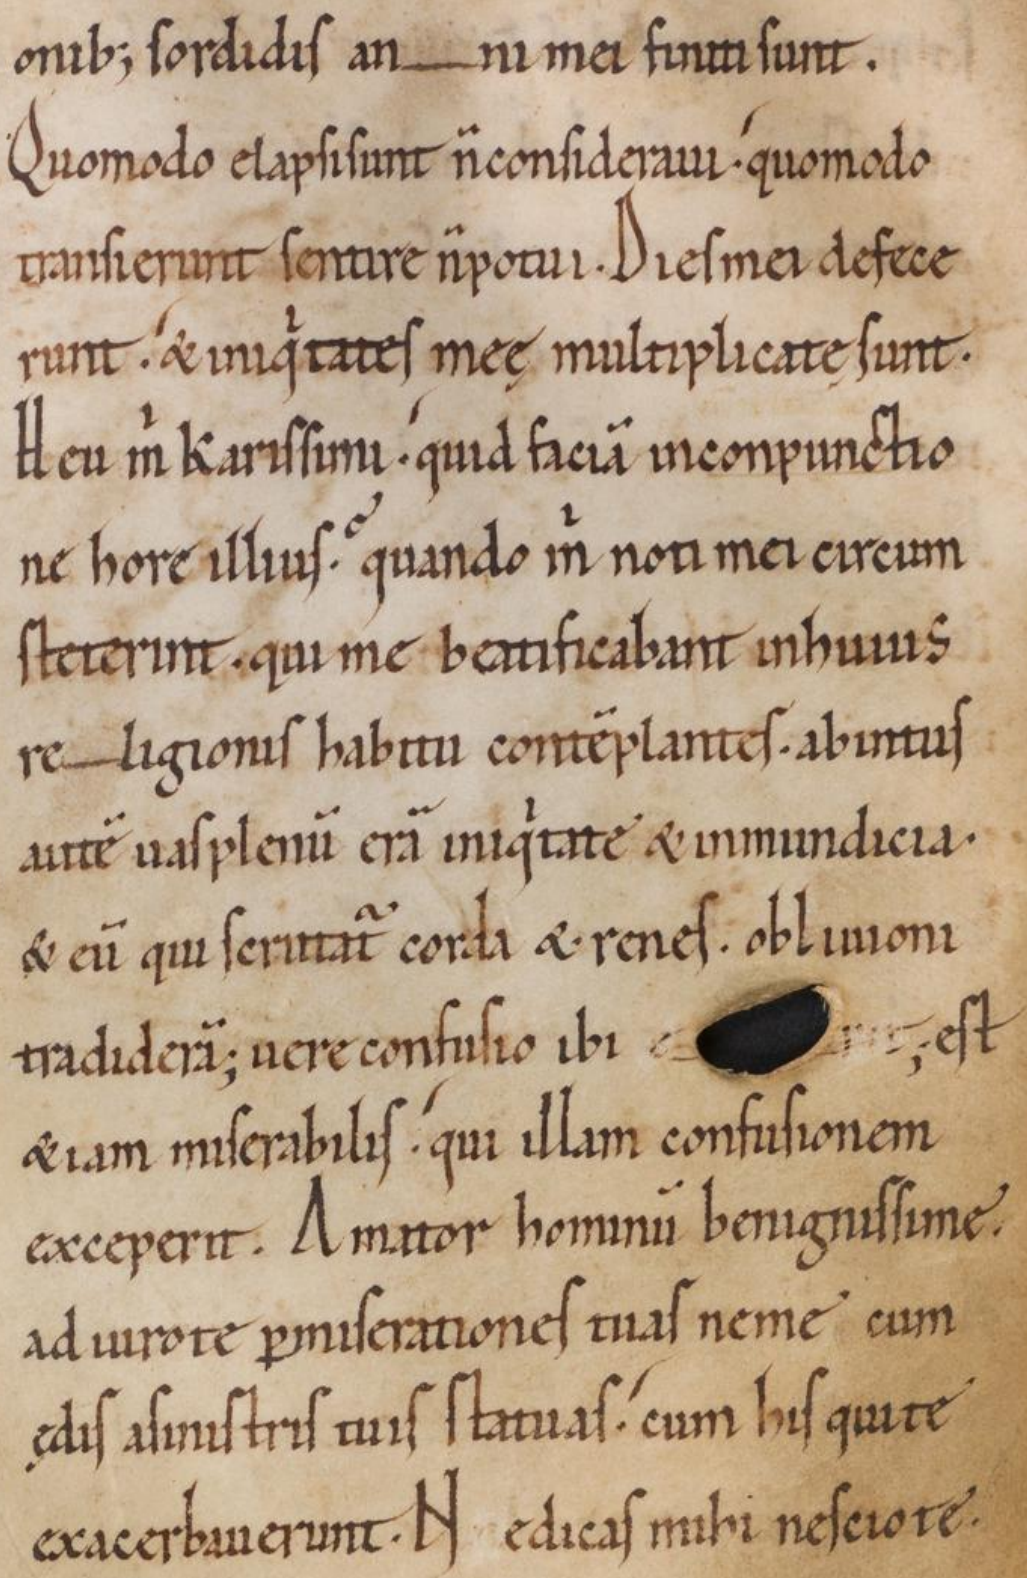 onib; sordidis an__ni mei finiti sunt.
Quomodo elapsi sunt n̄ consideraui. quomodo
transierunt sentire n̄ potui. Dies mei defece
runt. & iniq̇tates meę multiplicatę sunt.
Heu m̍ Karissimi. quid faciā in conpunctio
ne hore illius. quando m̍ noti mei circum
steterint. qui me beatificabant in huius
re__ligionis habitu contēplantes. ab intus
autē uas plenū erā iniq̇tate & inmundicia.
& eū qui scrutat̄ corda & renes. obliuioni
tradiderā; uere confusio ibi ; est
& iam miserabilis. qui illam confusionem
exceperit. Amator hominū benignissime.
adiuro te ꝑ miserationes tuas ne me cum
ędis a sinistris tuis statuas. cum his qui te
exacerbauerunt. N edicas mihi nescio te.